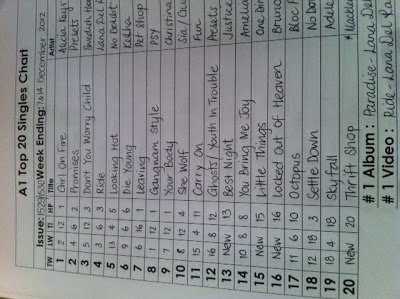 A1 Top 20 Singles Chart
Issue: 1529/530 Week Ending: 7&14 December, 2012
TW LW TI HP Title Artist
1 2 12 1 Girl On Fire Alicia Keys
2 4 6 2 Promises
3 5 12 3 Don't You Worry Child Swedish
4 3 6 3 Ride Lana Del R
5 13 4 5 Looking Hot No Doubt
6 9 6 6 Die Young Ke$ha
7 6 16 1 Leaving Pet Shop
8 1 12 1 Gangnam Style PSY
9 7 12 1 Your Body Christina
10 8 12 4 She Wolf Sia
11 15 4 11 Carry On Fun
12 16 8 12 Ghosts/Youth In Trouble Presets
13 New 13 Best Night Justice
14 10 8 8 You Bring Me Joy Amelia
15 New 15 Little Things One Dir
16 New 16 Locked Out Of Heaven Bruno
17 11 6 10 Octopus Bloc P
18 12 18 3 Settle Down No Dou
19 18 4 18 Skyfall Adele
20 New 20 Thrift Shop
# 1 Album: Paradise - Lana Del
# 1 Video: Ride - Lana Del